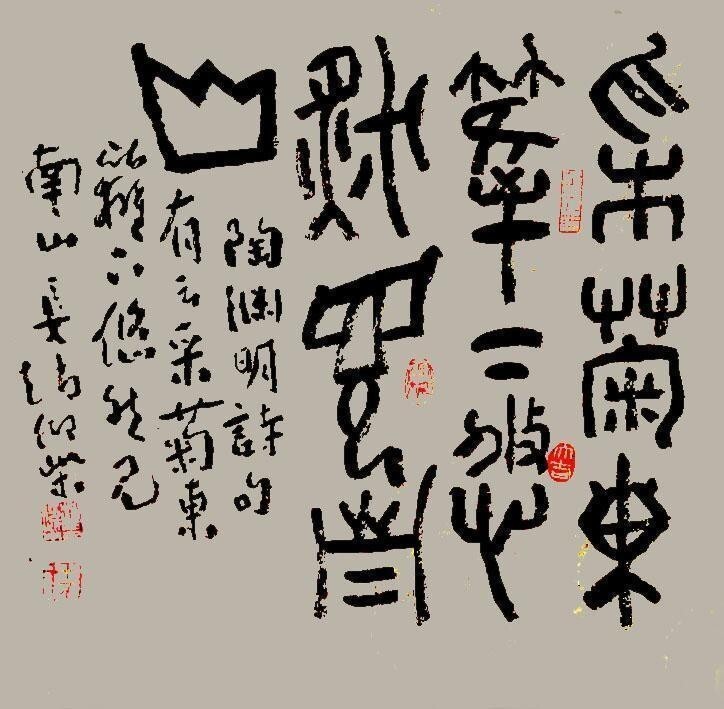 采菊東
籬下悠
然見南
山
陶淵明詩句
有云采菊東
籬下悠然見
南山